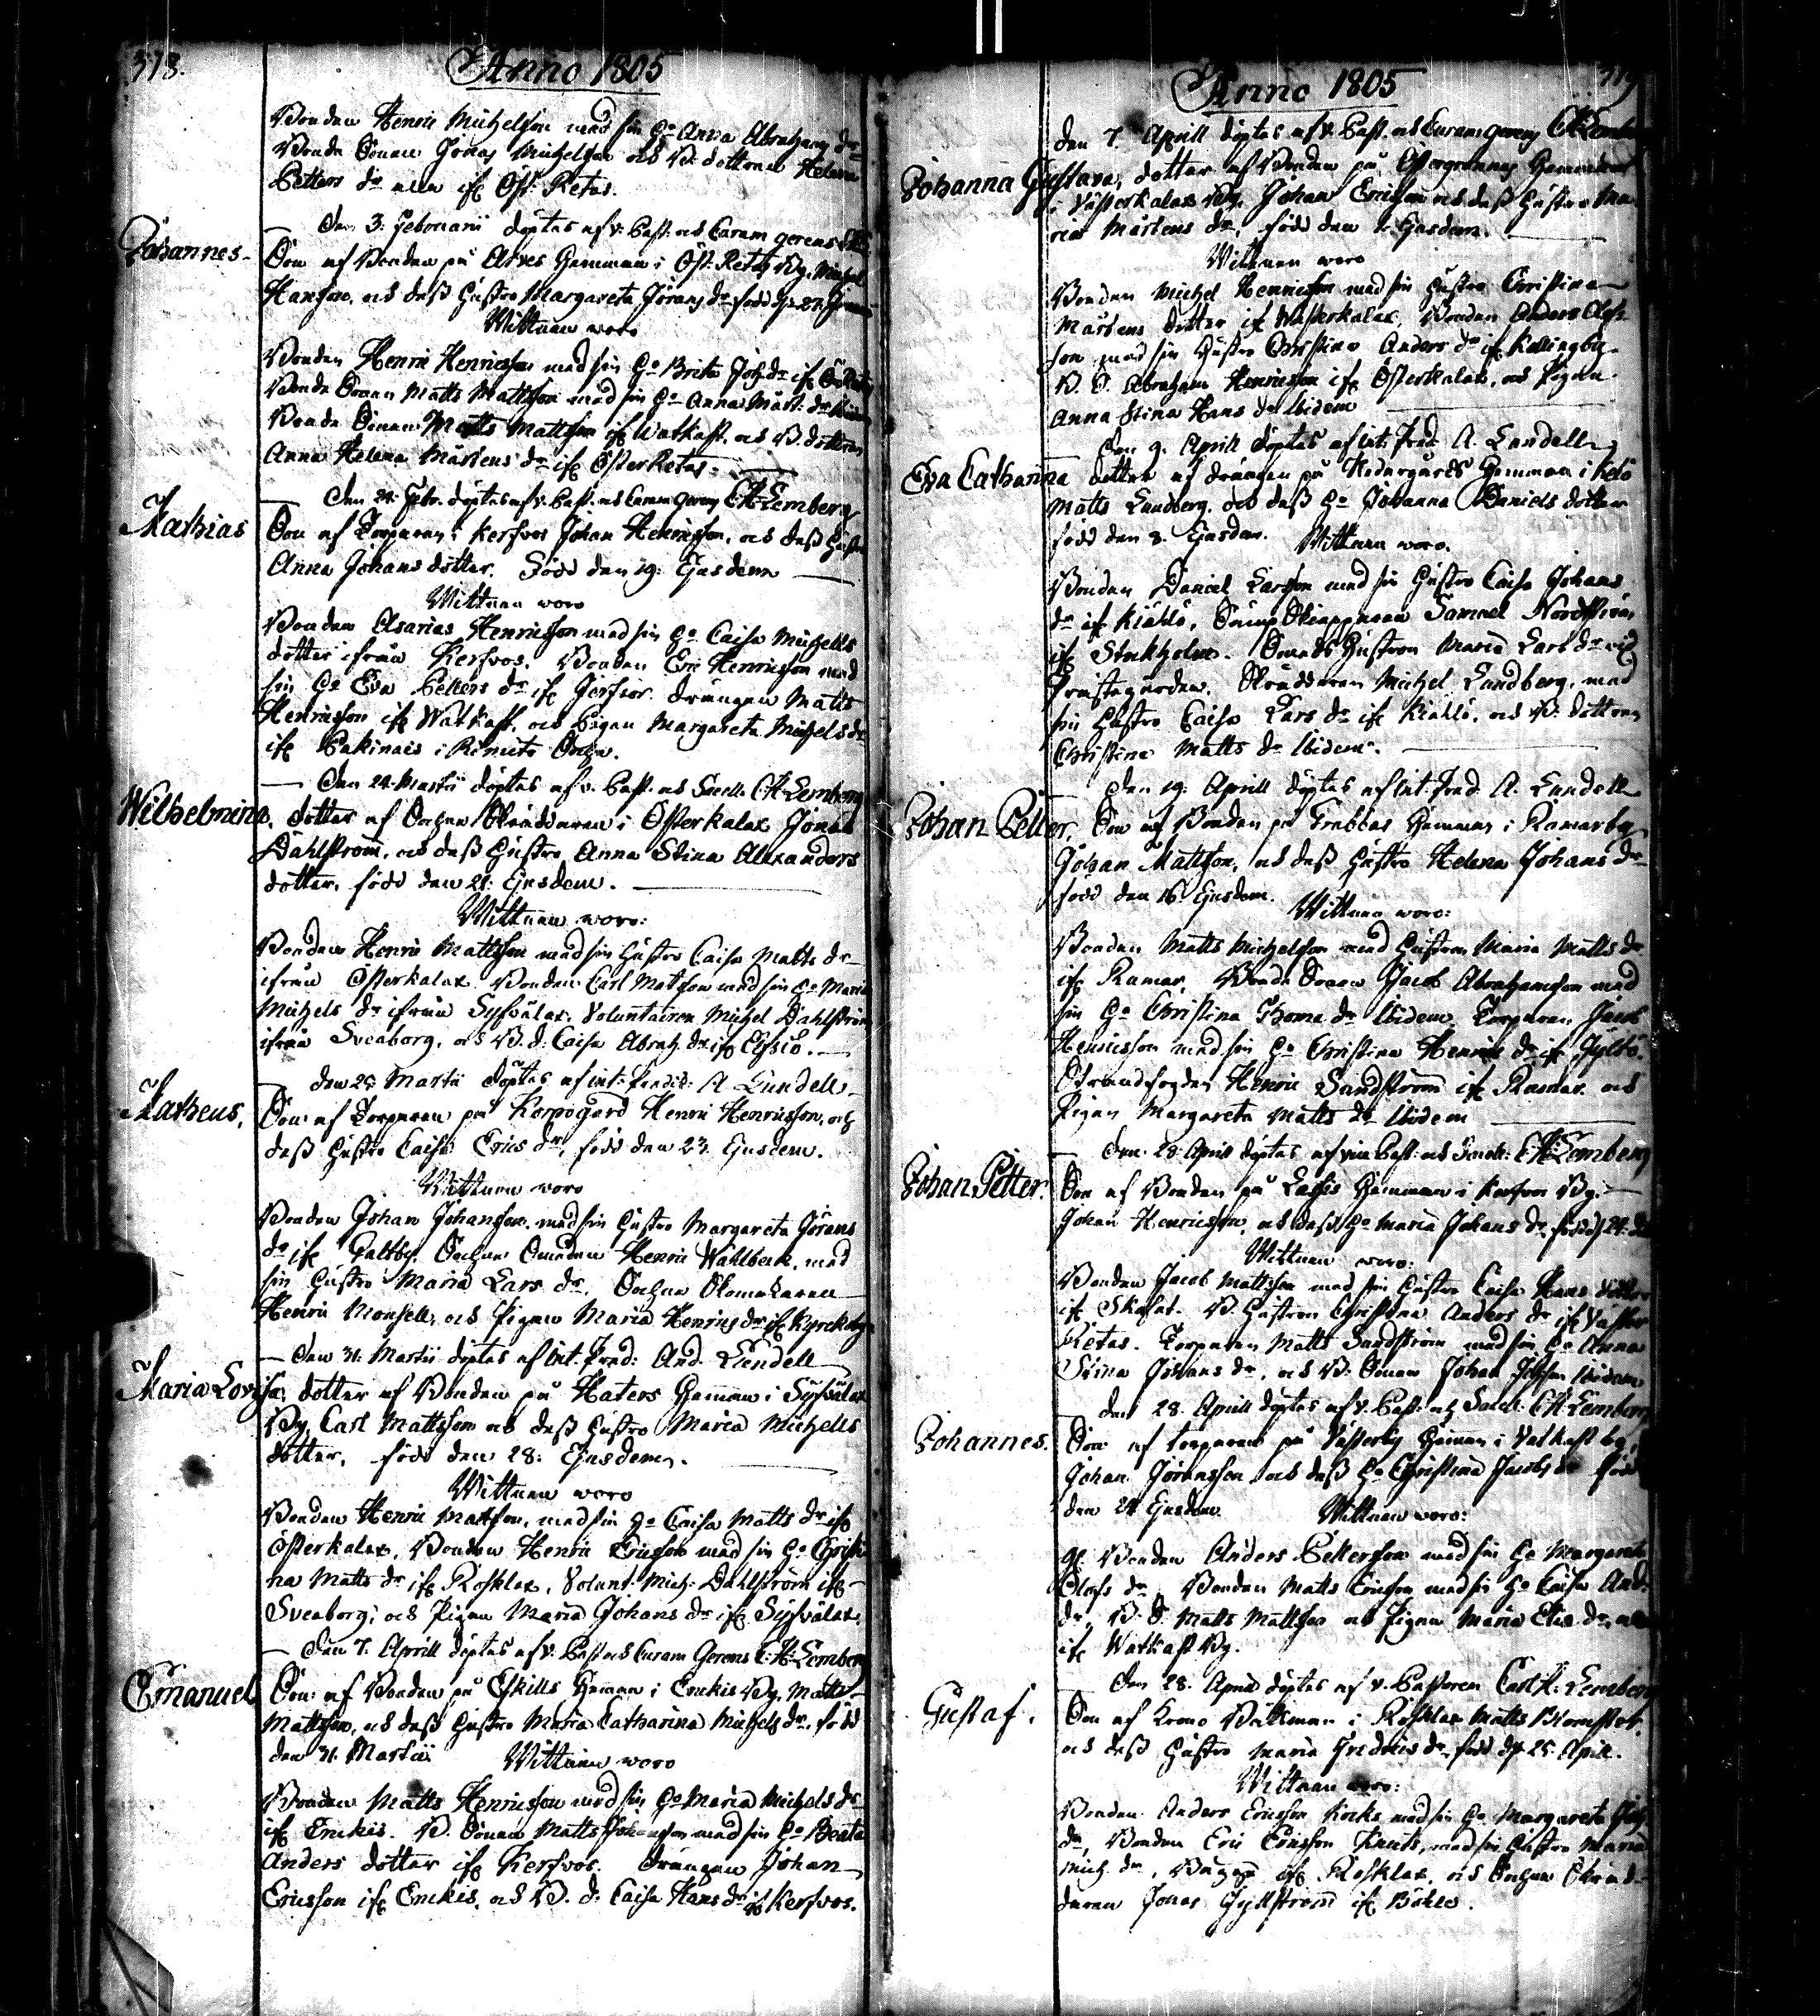 378.
Anno 1805
Bonden Henric Michelson med sin H:o Anna Abrahams dr
Bonde Sonen Jonas Michelson och B: dottren Helena
Petters dr alla ifr Öst: Retas.
Johannes.
Den 3. Februarii döptes af v: Past: och Curam gerens
Son af Bonden på Arves Hemman i Öst: Retas By, Michel
Hanson, och dess Hustro Margareta Jörans dr född d 27.
Wittnen woro
Bonden Henric Henricsson med sin H:o Brita Joh: dr ifr
Bonde Sonen Matts Mattsson med sin H:o Anna Mårt: dr ibidem
Bonde Sonen Matts Mattsson ifr Watkast och B: dottren
Anna Helena Mårtens dr ifr Österretas.
Mathias
Den 24: Febr: döptes af v: Past: och Curam gerens C:H: Lemberg
Son af Torparen i Kersvos Johan Henricsson, och dess Hustro
Anna Johans dotter. Född den 19: Ejusdem
Wittnen woro
Bonden Asarias Henricsson med sin H:o Caisa Michells
dotter ifrån Kersvos. Bonden Eric Henricsson med
sin H:o Eva Petters dr ifr Jerfsor. Drängen Matts
Henricsson ifr Watkast, och Pigan Margareta Michels dr
ifr Pakinais i Rimito Sochn.
Wilhelmina.
Den 24. Martii döptes af v. Past. och Sacell: C:H: Lemberg
dotter af Sochne Skräddaren i Österkalax Jonas
Dahlström, och dess Hustro Anna Stina Alexanders
dotter, född den 21: Ejusdem.
Wittnen woro:
Bonden Henric Mattsson med sin Hustro Caisa Matts dr
ifrån Österkalax. Bonden Carl Matsson med sin H:o Maria
Michels dr ifrån Syfvälax. Voluntairen Michel Dahlström
ifrån Sveaborg, och B. d: Caisa Abrah: dr ifr Elfsiö.
Matheus.
den 25 Martii döptes af int: Præd: A Lundell
Son af Torparen på Korpogård Henric Henricsson, och
dess Hustro Caisa Erics dr, född den 23. Ejusdem.
Wittnen woro
Bonden Johan Johansson, med sin Hustro Margareta Jörans
dr ifr Galtby. Sochne Smeden Henric Wahlbeck, med
sin Hustro Maria Lars dr. Sochne Skomakaren
Henric Monsell, och Pigan Maria Henrics dr ifr Kyrckoby
Maria Lovisa
Den 31: Martii döptes af Int. Præd: And. Lundell
dotter af Bonden på Haters Hemman i Syfvälax
By, Carl Mattsson och dess Hustro Maria Michells
dotter, född den 28: Ejusdem.
Wittnen woro
Bonden Henric Matsson, med sin H:o Caisa Matts dr ifr
Österkalax. Bonden Henric Ericsson med sin H:o Christi
na Matts dr ifr Rosklax, Volunt: Mich: Dahlström ifr
Sveaborg, och Pigan Maria Johans dr ifr Syfvälax.
Emanuel
Den 7. Aprill döptes af v: Past och Curam Gerens C:H: Lemberg
Son af Bonden på Eskills Heman i Enckis By, Matts
Mattsson, och dess Hustro Maria Catharina Michels dr, född
den 31. Martii
Wittnen woro
Bonden Matts Henricsson med sin H:o Maria Michels dr
ifr Enckis. B. Sonen Matts Johansson med sin H:o Beata
Anders dotter ifr Kersvos. Drängen Johan
Ericsson ifr Enckis, och B. d: Caisa Hans dr ifr Kersvos.
379
Anno 1805
den 7. Aprill döptes af v: Past. och Curam gerens C:H: Lemberg
Johanna Gustava, dotter af Bonden på Östergrannas Hemman
i Västerkalax By, Johan Ericsson och dess Hustro Ma
ria Mårtens dr, född den 1: Ejusdem.
Wittnen woro
Bonden Michel Henricsson med sin Hustro Christina
Mårtens dotter ifr Wästerkalax, Bonden Anders Olofs
son med sin Hustro Christina Anders dr ifr Kallingby.
B. S. Abraham Henricsson ifr Österkalax, och Pigan
Anna Stina Hans dr Ibidem
Den 9. Aprill döptes af int: Præd: A. Lundell
Eva Catharina dotter af Drängen på Nedergårds Hemman i Kelö
Matts Lundberg, och dess H:o Johanna Daniels dotter
född den 8. Ejusdem.
Wittnen woro.
Bonden Daniel Larsson med sin Hustro Caisa Johans
dr ifr Kiählö, Samuel Nordström
ifr Stockholm. Hustron Maria Lars dr vid
Prästegården. Skräddaren Michel Lundberg, med
sin Hustro Caisa Lars dr ifr Kiählö, och B: dottren
Christina Matts dr Ibidem.
Den 19: Aprill döptes af int. Præd. A. Lundell
Johan Petter. Son af Bonden på Grabbas Hemman i Ramarby
Johan Mattsson, och dess Hustro Helena Johans dr
född den 16 Ejusdem.
Wittnen woro:
Bonden Matts Michelson med Hustron Maria Matts dr
ifr Ramar. Bonde Sonen Jacob Abrahamsson med
sin H:o Christina Thoma dr Ibidem. Torparen Jacob
Henricsson med sin H:o Christina Henrics dr ifr Gyltö.
Strandfogden Henric Sandström ifr Ramar och
Pigan Margareta Matts dr Ibidem
Den 28 Aprill döptes af vice Past: och Sacell: C:H: Lemberg
Johan Petter. Son af Bonden på Lassis Hemman i Korfvos By
Johan Henricsson, och dess H:o Maria Johans dr, född d 24.
Wittnen woro:
Bonden Jacob Mattsson med sin Hustro Caisa Hans dotter
ifr Skafat. B. Hustron Christina Anders dr ifr Väster
Retas. Torparen Matts Sandström med sin H:o Anna
Stina Johans dr, och B: Sonen Johan Johsson Ibidem
den 28. Aprill döptes af v. Past. och Sacell: C:H: Lemberg
Johannes. Son af torparen på Västerby Heman i Vatkast by,
Johan Jöransson och dess H:o Christina Jacobs dr född
den 24 Ejusdem
Wittnen woro:
Bonden Anders Pettersson med sin H:o Margareta
Olofs dr, Bonden Matts Ericsson med sin H:o Caisa And:
dr, B. S. Matts Mattsson och Pigan Maria Elis dr, alla
ifr Watkast By.
Den 28. Aprill döptes af v. Pastoren Carl H: Lemberg
Gustaf. Son af Krono Båtsman i Rosklax Matts
och dess Hustro Maria Fredrics dr, född d 25: April.
Wittnen woro:
Bonden Anders Ericsson Kocks med sin H:o Margareta Joh:
dr, Bonden Eric Ericsson Knuts, med sin Hustro Maria
Mich: dr, ifr Rosklax, och Sochne Skräd
daren Jonas Gyllström ifr